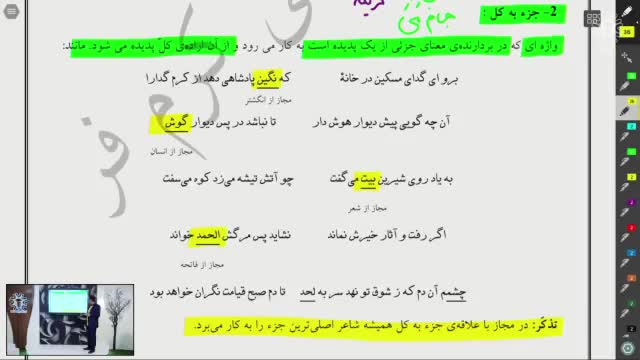 2- جزء به کل :
واژه ای که در بردارنده‌ی معنای جزئی از یک پدیده است به کار می رود و از آن اراده‌ی کلّ پدیده می شود. مانند:
برو ای گدای مسکین در خانهٔ که نگین پادشاهی دهد از کرم گدا را
مجاز از انگشتر
آن چه گویی پیش دیوار هوش دار تا نباشد در پس دیوار گوش
مجاز از انسان
به یاد روی شیرین بیت می‌گفت چو آتش تیشه می‌زد کوه می‌سفت
مجاز از شعر
اگر رفت و آثار خیرش نماند نشاید پس مرگش الحمد خواند
مجاز از فاتحه
چشمم آن دم که ز شوق تو نهد سر به لحد تا دم صبح قیامت نگران خواهد بود
تذکّر: در مجاز با علاقه‌ی جزء به کل همیشه شاعر اصلی‌ترین جزء را به کار می‌برد.